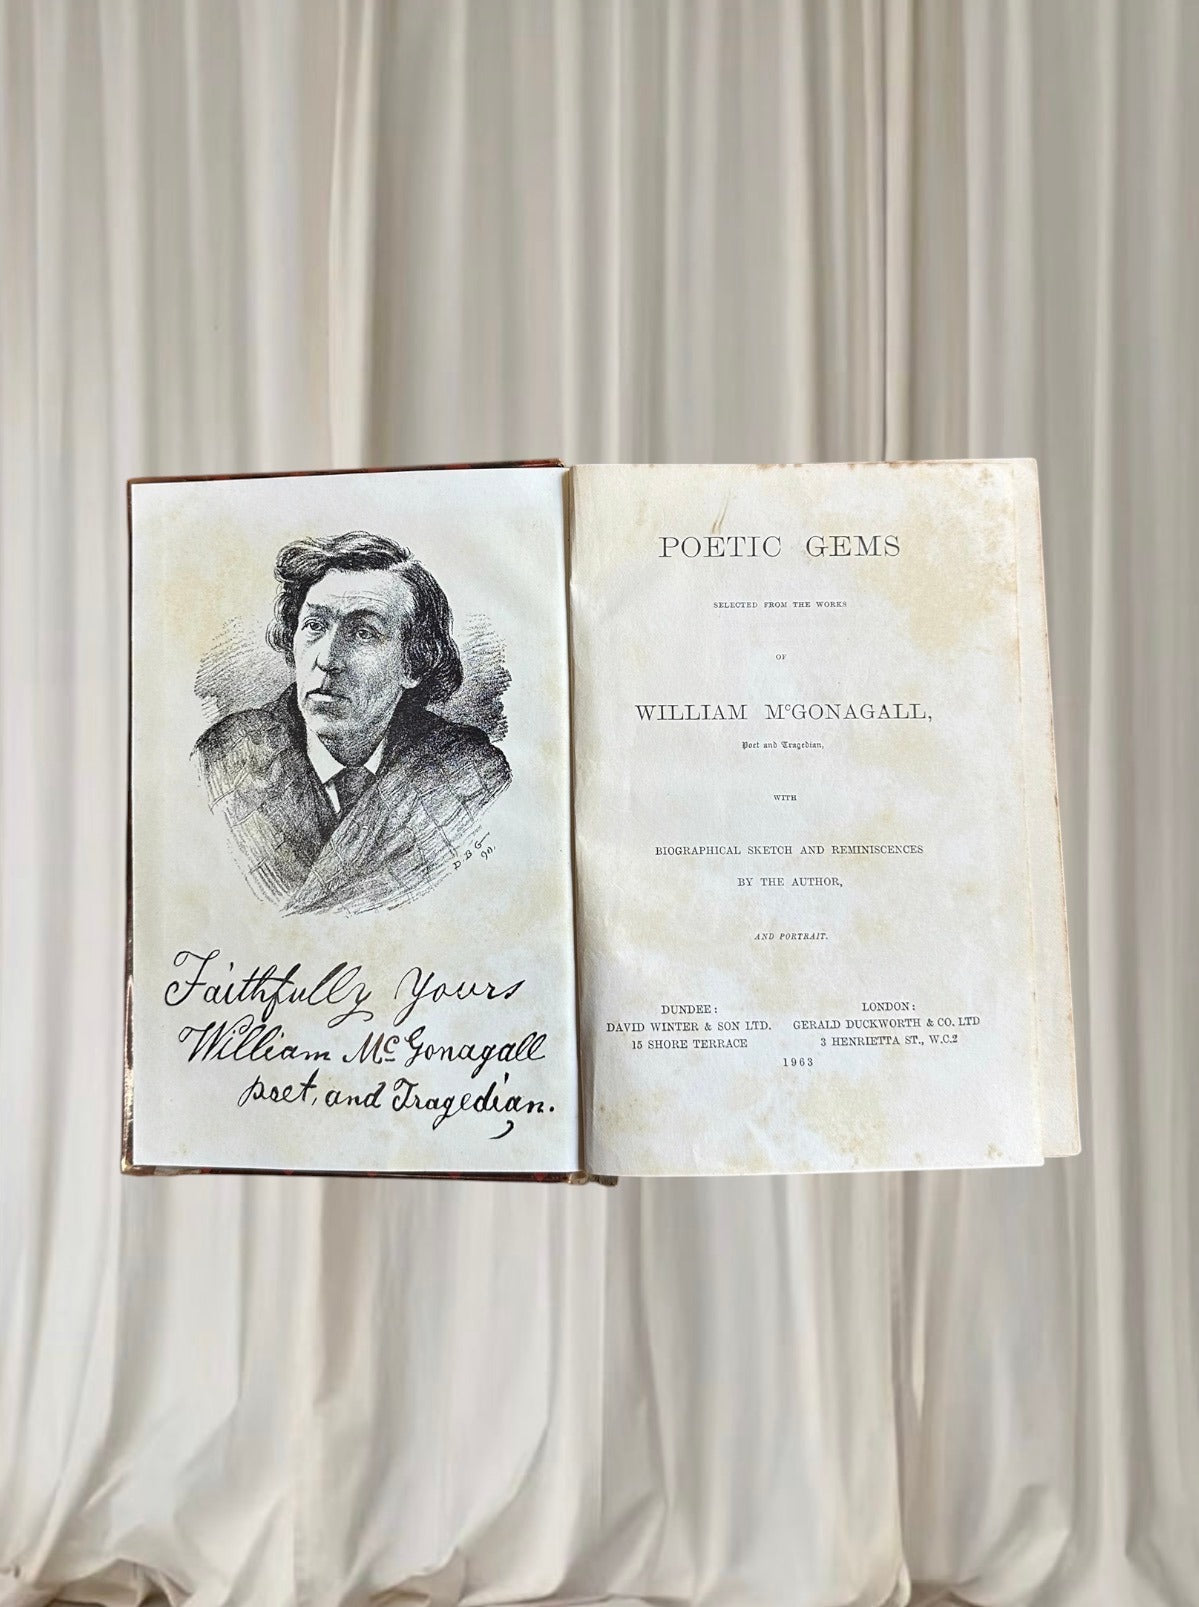 D. B. G—
90.
Faithfully Yours
William Mc Gonagall
poet, and Tragedian.
POETIC GEMS
SELECTED FROM THE WORKS
OF
WILLIAM McGONAGALL,
Poet and Tragedian,
WITH
BIOGRAPHICAL SKETCH AND REMINISCENCES
BY THE AUTHOR,
AND PORTRAIT.
DUNDEE:
DAVID WINTER & SON LTD.
15 SHORE TERRACE
LONDON:
GERALD DUCKWORTH & CO. LTD
3 HENRIETTA ST., W.C.2
1963